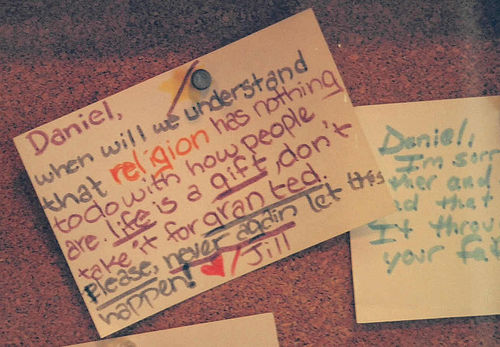 Daniel,
when will we understand
that religion has nothing
to do with how people
are. life is a gift, don't
take it for granted.
Please, never again let this
happen!
Jill
Daniel,
I'm sorr
ther and
d that
It throu
your fa